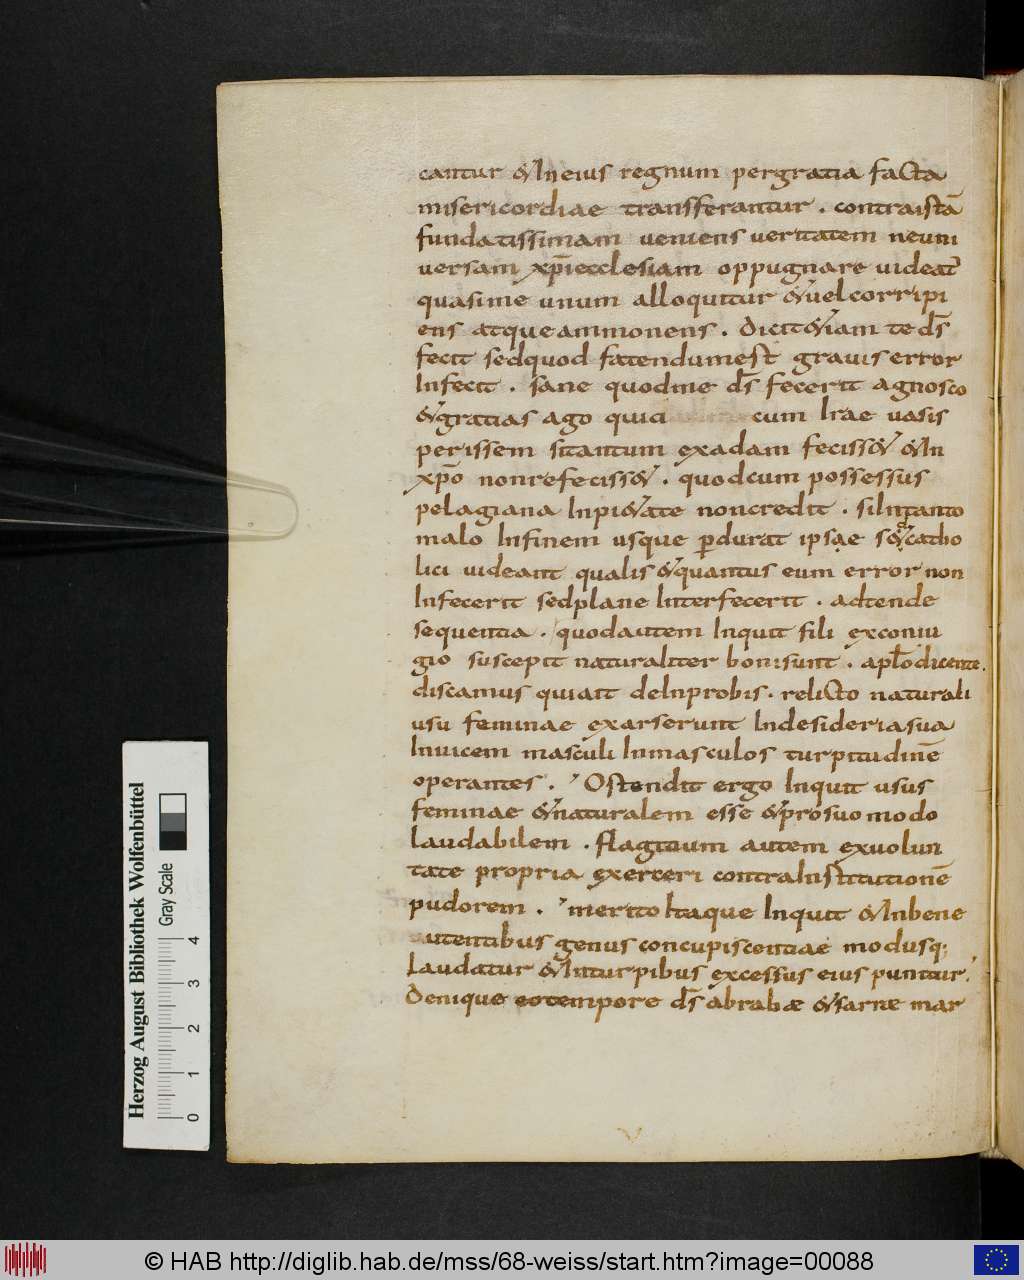 cantur & In eius regnum pergratia facta
misericordiae transferantur . contraistā
fundatissimam ueniens ueritatem neuni
uersam xp̄iecclesiam oppugnare uideat͛
quasime unum alloquitur & uelcorripi
ens atqueammonens . dicit &iam te d̄s
fecit sedquod fatendumest grauiserror
Infecit . sane quodme d̄s fecerit agnosco
& gratias ago quia cum Irae uasis
perissem sitantum exadam feciss& & In
xp̄o nonrefeciss& . quodcum possessus
pelagiana Inpi&ate noncredit . siIntanto
malo Infinem usque ꝑdurat ipsae s& catho
lici uideant qualis & quantus eum error non
Infecerit sedplane Interfecerit . adtende
sequentia . quodautem Inquit fili exconiu
gio suscepit naturaliter bonisunt . apl̄o dicente.
discamus quiait deInprobis . relicto naturali
usu feminae exarserunt Indesideriasua
Inuicem masculi Inmasculos turpitudinē
operantes . Ostendit ergo Inquit usus
feminae & naturalem esse & prosuo modo
laudabilem . flagitium autem exuolun
tate propria exerceri contraInstitutionē
pudorem . merito Itaque Inquit & Inbene
autentibus genus concupiscentiae modusq;
laudatur & Inturpibus excessus eius punitur.
Denique eotempore d̄s abrahae & sarrae mar
Herzog August Bibliothek Wolfenbüttel
Gray Scale
0 1 2 3 4
© HAB http://diglib.hab.de/mss/68-weiss/start.htm?image=00088